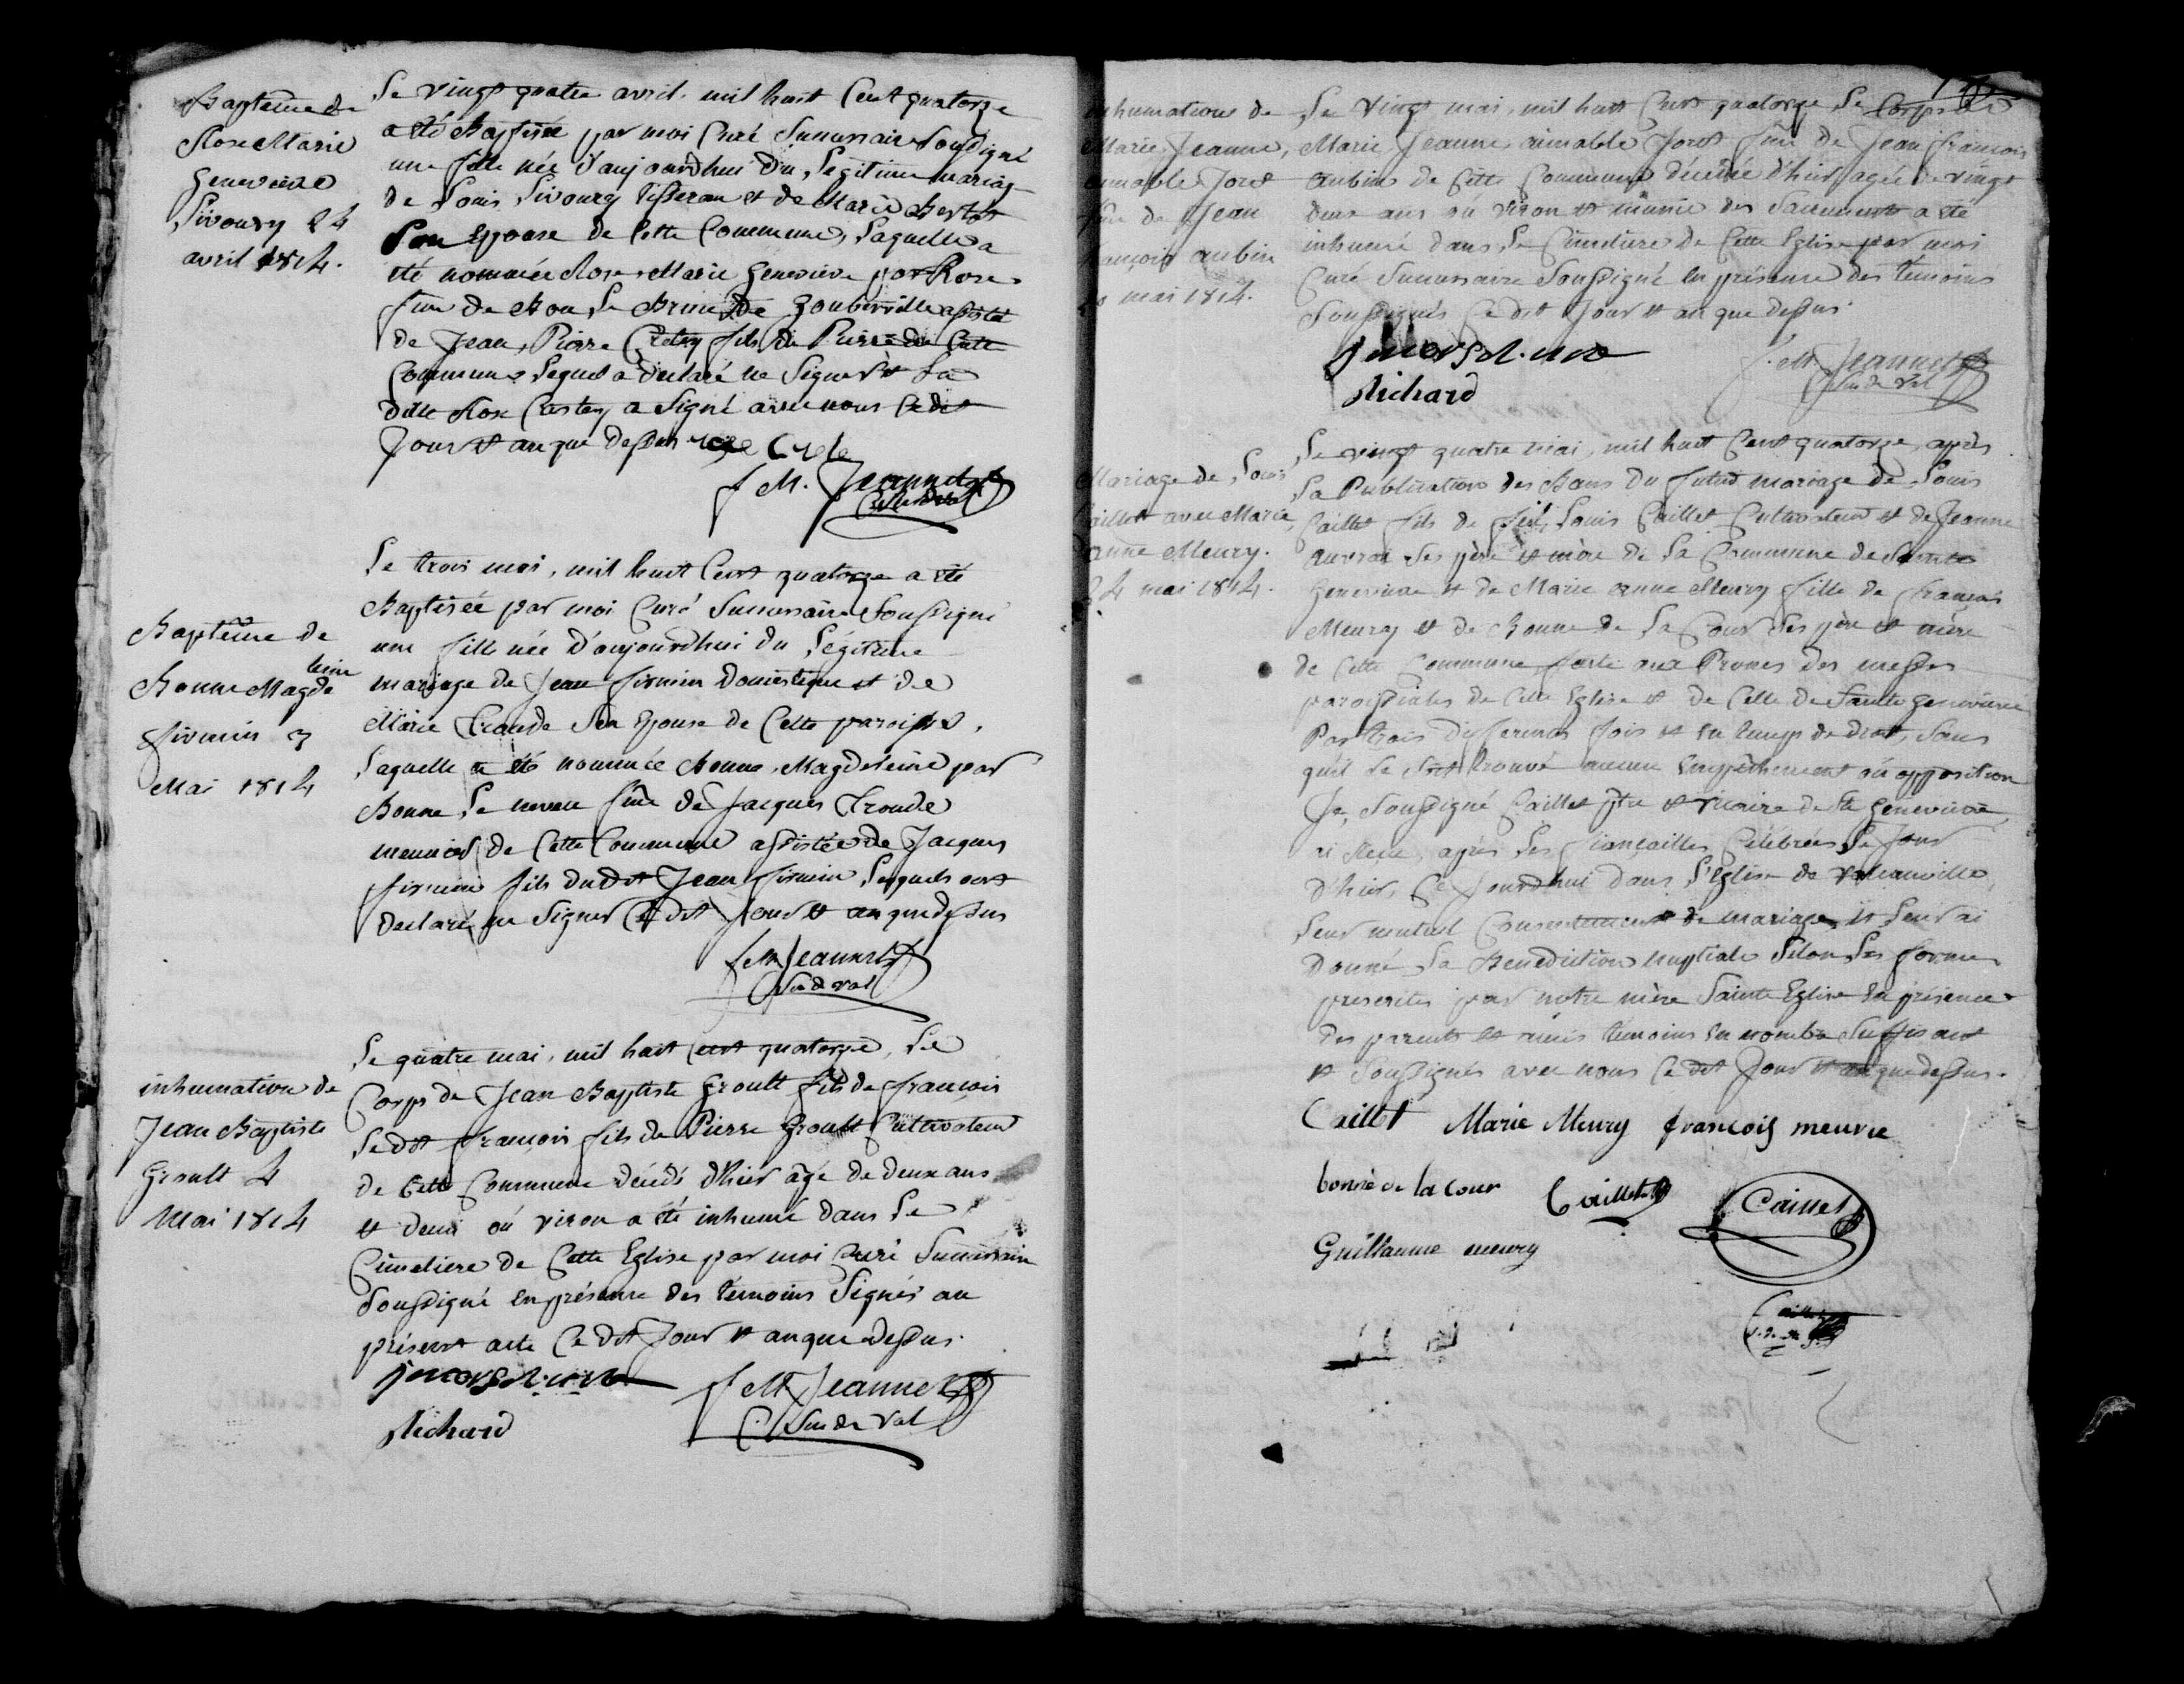 Baptême de
Rose Marie
Geneviève
Sivoury 24
avril 1814.
Le vingt quatre avril, mil huit Cent quatorze
a été Baptisée par moi Curé Succursaire Soussigné
une fille née d'aujourdhui du Légitime mariage
de Louis Sivoury Tisseran et de Marie
Son Epouse de Cette Commune, Laquelle a
été nommée Rose Marie Geneviève par Rose
fme de Bon Le de Gouberville assisté
de Jean Pierre fils de Pierre de Cette
Commune Lequel a déclaré ne Signer et La
ditte Rose a Signé avec nous Ce dit
Jour et an que dessus
f M. Jeannet
C. Suc de Val
Baptême de
Bonne Magde
leine
firmin 3
Mai 1814
Le trois mai, mil huit Cent quatorze a été
Baptisée par moi Curé Succursaire Soussigné
une fille née d'aujourdhui du Légitime
mariage de Jean firmin Domestique et de
Marie Troude Son Epouse de Cette paroisse,
Laquelle a été nommée Bonne Magdeleine par
Bonne Le neveu fme de Jacques Troude
meunier de Cette Commune assistée de Jacques
firmin fils dudit Jean firmin Lesquels ont
declaré ne Signer Ce dit Jour et an que dessus
f M Jeannet
C. Suc de Val
inhumation de
Jean Baptiste
Groult 4
Mai 1814
Le quatre mai, mil huit Cent quatorze, Le
Corps de Jean Baptiste Groult fils de francois
Ledit francois fils de Pierre Groult Cultivateur
de Cette Commune décédé d'hier âgé de deux ans
et demi où viron a été inhumé dans Le
Cimetiere de Cette Eglise par moi Curé Succursaire
Soussigné en présence des témoins Signés au
présent acte Ce dit Jour et an que dessus.
f M Jeannet
C. Suc de Val
Richard
inhumation de
Marie Jeanne,
aimable Jores
fme de Jean
françois aubin
20 mai 1814.
Le vingt mai, mil huit Cent quatorze Le Corps de
Marie Jeanne aimable Jores fme de Jean francois
aubin de Cette Commune décédée d'hier agée de vingt
deux ans où viron et munie des Sacrements a été
inhumé dans Le Cimetiere de Cette Eglise par moi
Curé Succursaire Soussigné en présence des témoins
Soussignés Ce dit Jour et an que dessus.
f. M. Jeannet
Suc de Val
Richard
Mariage de Louis
Caillet avec Marie
anne Meury.
24 mai 1814.
Le vingt quatre mai, mil huit Cent quatorze, après
La Publication des Bans du futur mariage de Louis
Caillet fils de feu Louis Caillet Cultivateur et de Jeanne
Ses père et mère de La Commune de Sainte
Geneviève et de Marie anne Meury fille de francois
Meury et de Bonne de La Cour Ses père et mère
de Cette Commune faite aux Prones des messes
paroissiales de Cette Eglise et de Celle de Sainte Geneviève
Par trois differentes fois et en temps de droit, Sans
qu'il Se Soit trouvé aucun Empêchement où opposition
Je, Soussigné Caillet ptre et vicaire de Ste Geneviève,
ai Reçu, après Les fiançailles Célébrées Le Jour
D'hier, Ce Jourdhui dans L'Eglise de Valcanville
Leur mutuel Consentement de mariage, et Leur ai
Donné La Benediction nuptiale Selon Les formes
prescrites par notre mère Sainte Eglise En présence
des parents et amis témoins en nombre Suffisant
et Soussignés avec nous Ce dit Jour et an que dessus.
Caillet Marie Meury françois meurie
bonne de la Cour Caillet Caillet
Guillaume meury